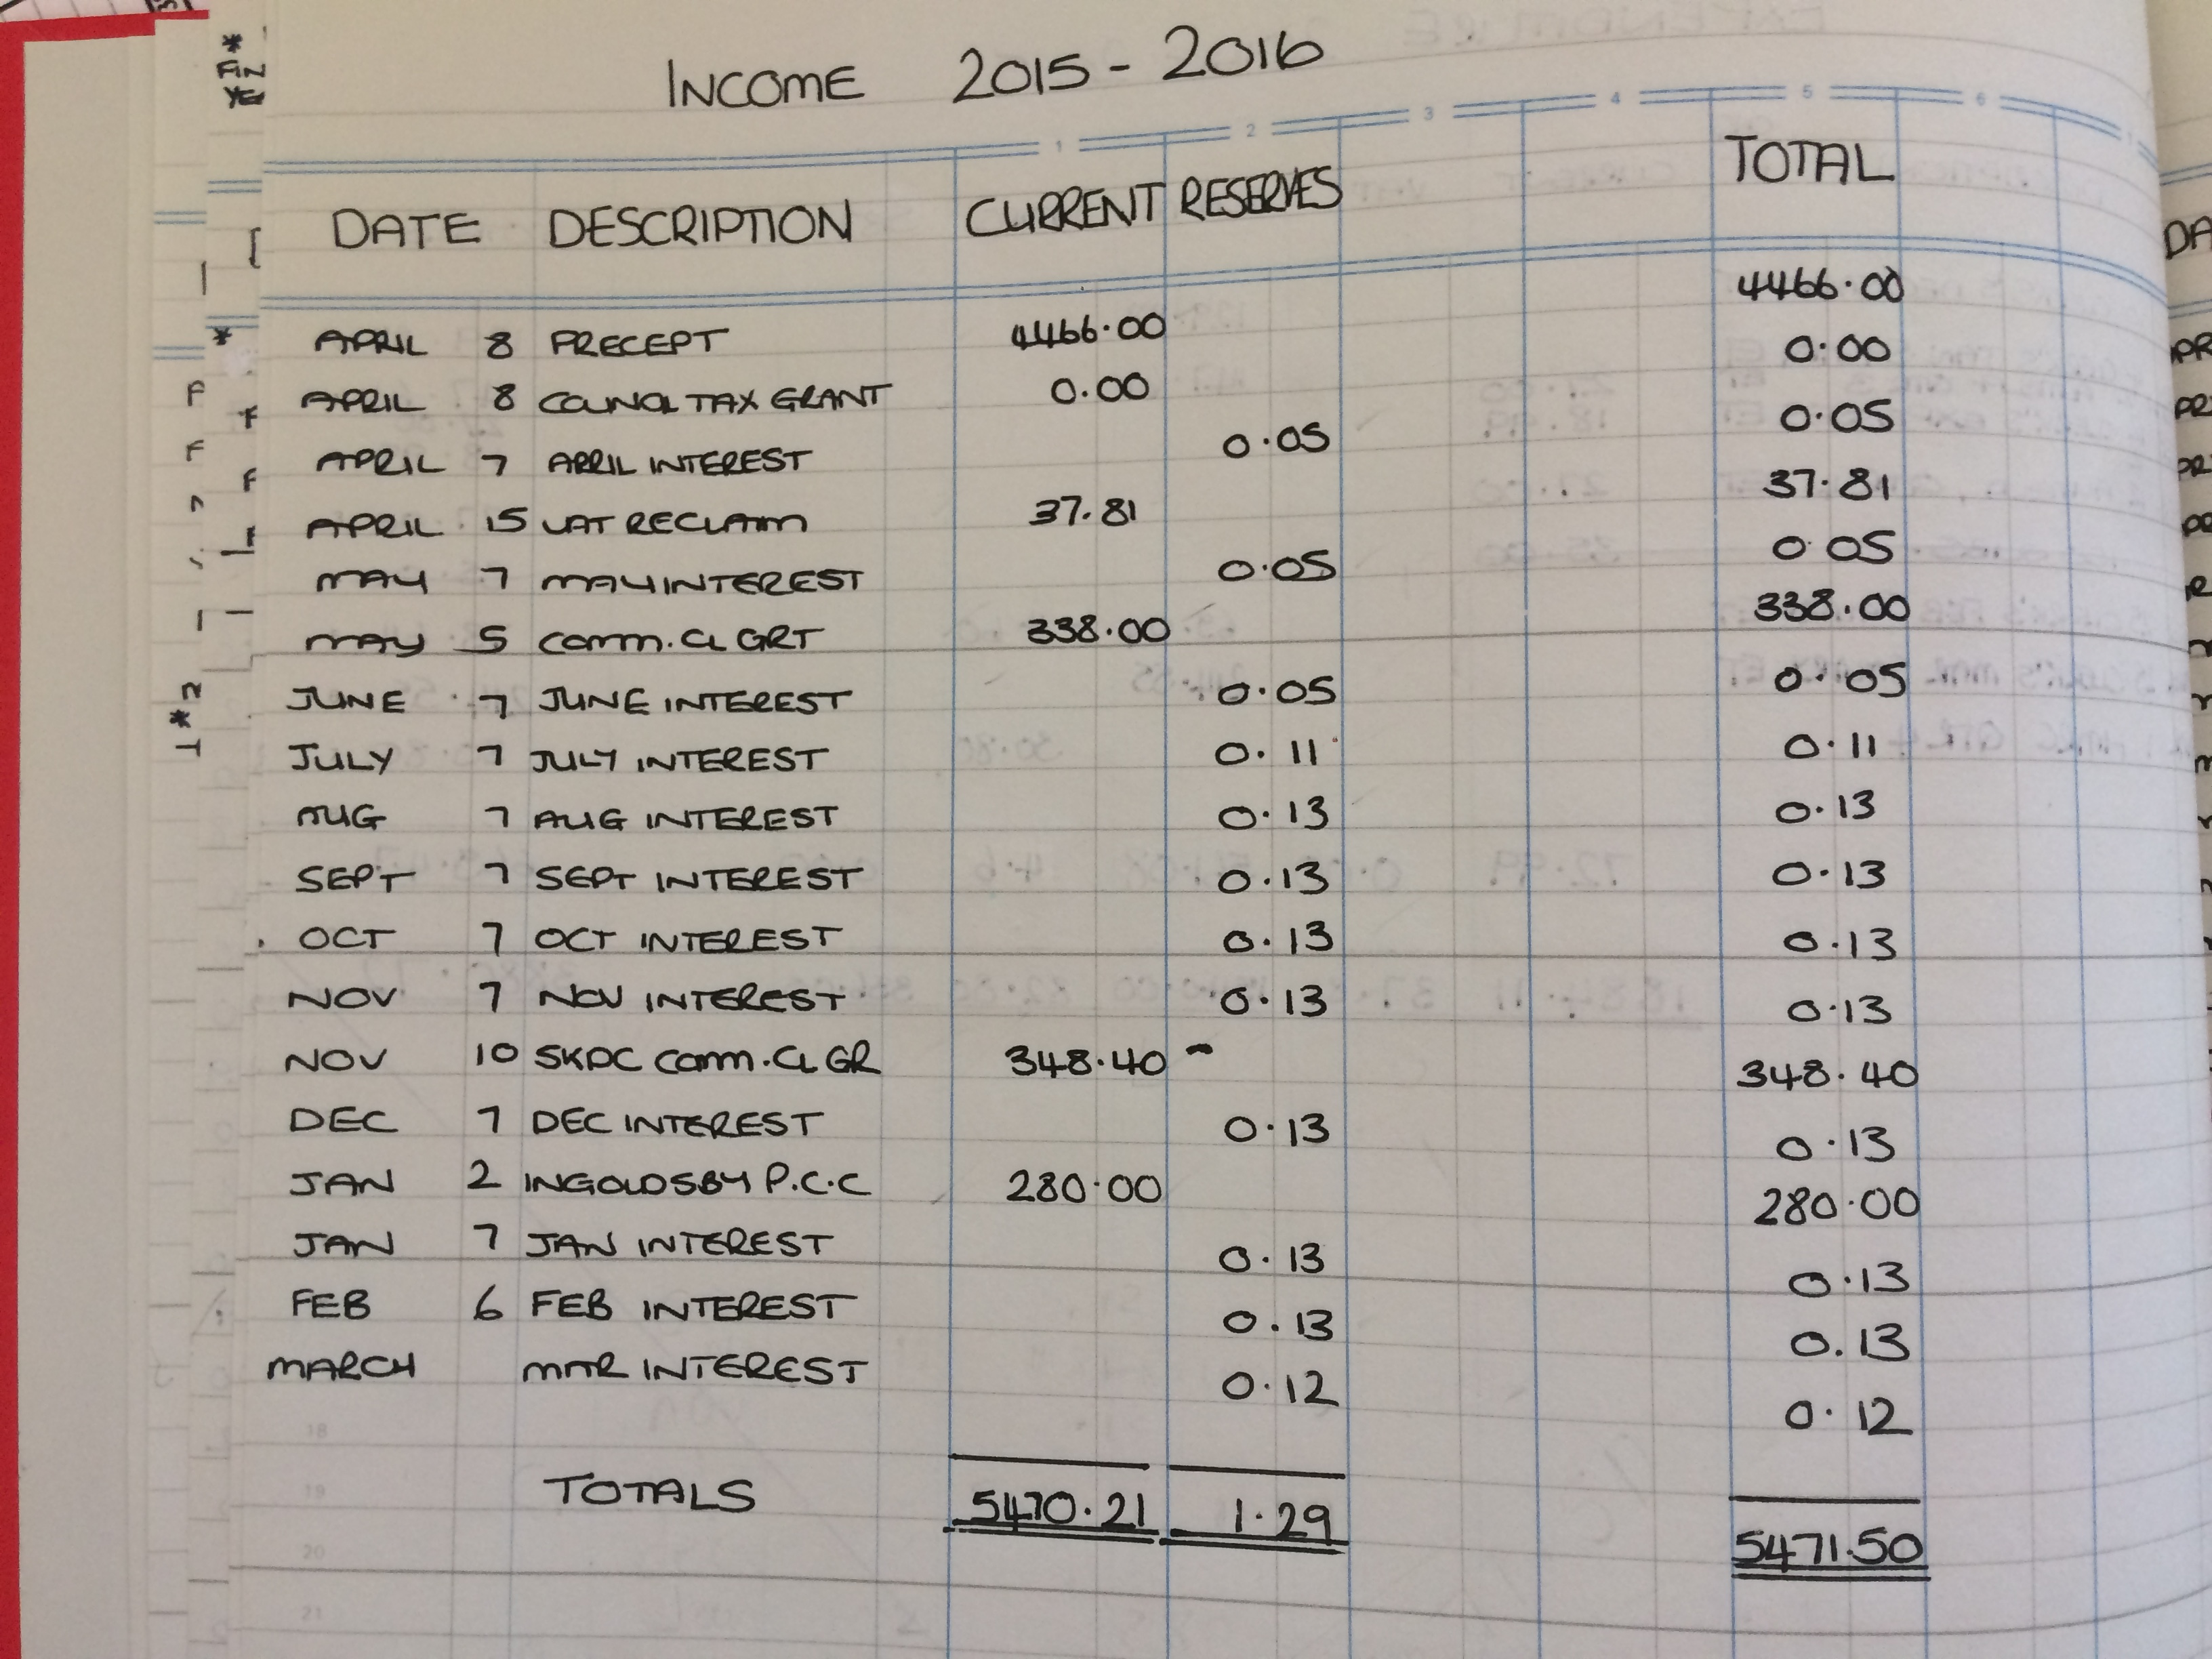 INCOME 2015 - 2016
1 2 3 4 5 6
DATE DESCRIPTION CURRENT RESERVES TOTAL
APRIL 8 PRECEPT 4466.00 4466.00
APRIL 8 COUNCIL TAX GRANT 0.00 0.00
APRIL 7 APRIL INTEREST 0.05 0.05
APRIL 15 VAT RECLAIM 37.81 37.81
MAY 7 MAY INTEREST 0.05 0.05
MAY 5 COMM.CL GRT 338.00 338.00
JUNE 7 JUNE INTEREST 0.05 0.05
JULY 7 JULY INTEREST 0.11 0.11
AUG 7 AUG INTEREST 0.13 0.13
SEPT 7 SEPT INTEREST 0.13 0.13
OCT 7 OCT INTEREST 0.13 0.13
NOV 7 NOV INTEREST 0.13 0.13
NOV 10 SKDC COMM.CL GR 348.40 - 348.40
DEC 7 DEC INTEREST 0.13 0.13
JAN 2 INGOLDSBY P.C.C 280.00 280.00
JAN 7 JAN INTEREST 0.13 0.13
FEB 6 FEB INTEREST 0.13 0.13
MARCH MAR INTEREST 0.12 0.12
18
19 TOTALS 5470.21 1.29 5471.50
20
21